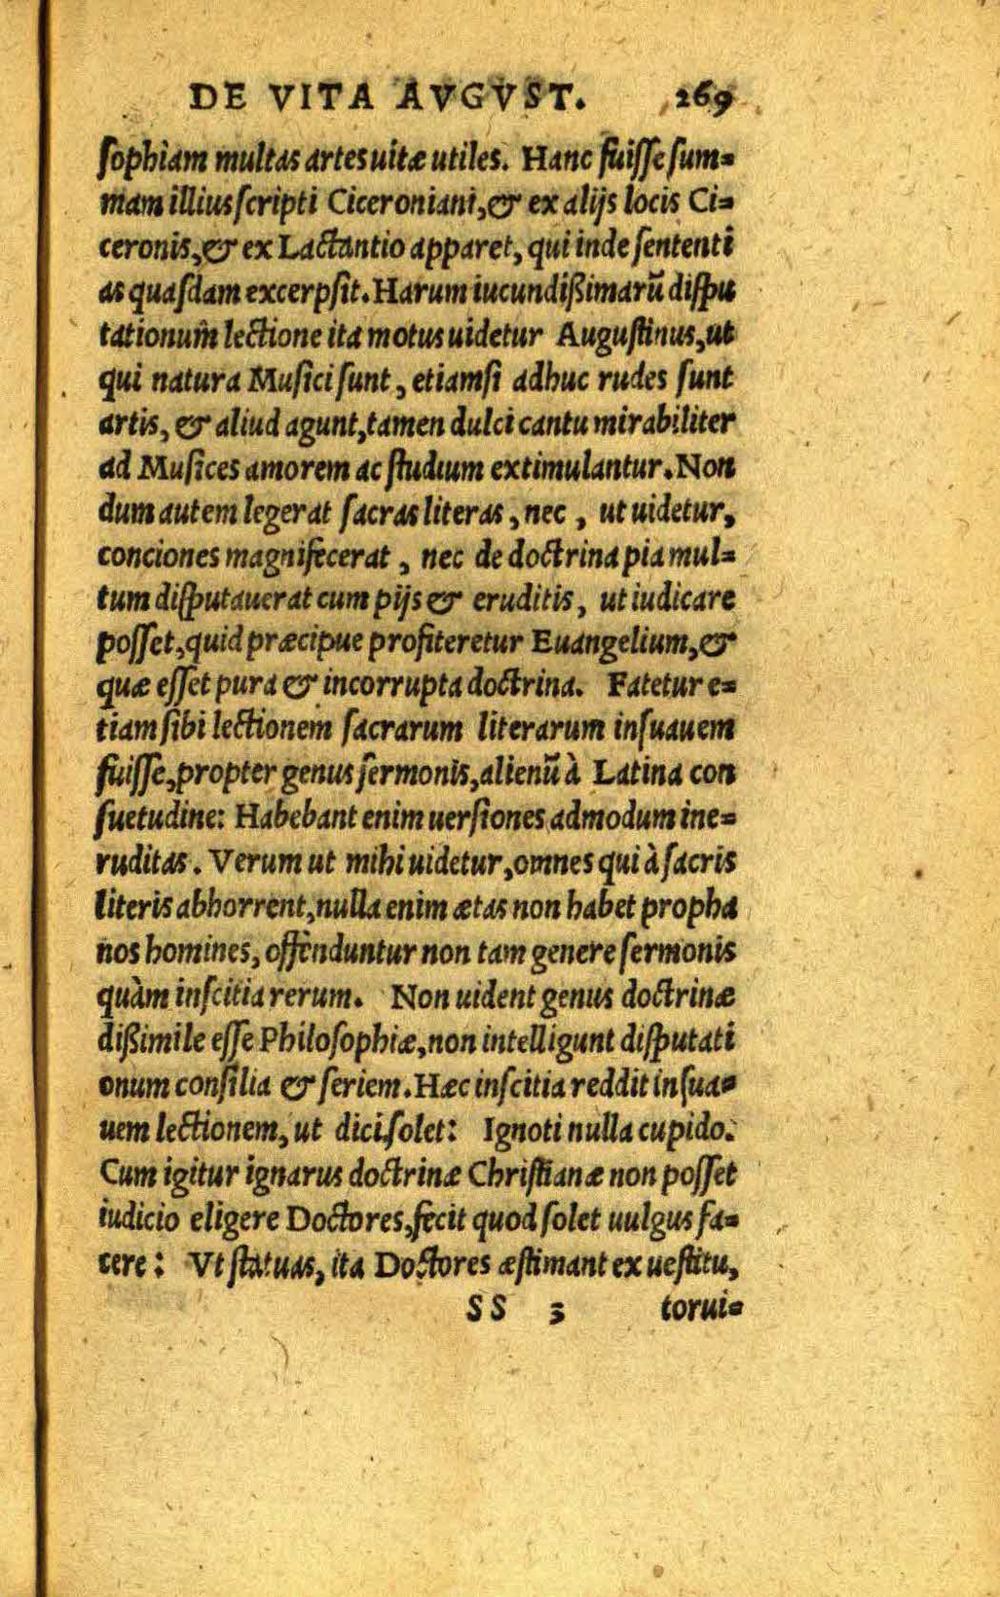 DE VITA AVGVST. 269
sophiam multas artes uitæ utiles. Hanc fuisse sum=
mam illius scripti Ciceroniani, & ex alijs locis Ci=
ceronis, & ex Lactantio apparet, qui inde sententi
as quasdam excerpsit. Harum iucundißimarũ dispu
tationum lectione ita motus uidetur Augustinus, ut
qui natura Musici sunt, etiamsi adhuc rudes sunt
artis, & aliud agunt, tamen dulci cantu mirabiliter
ad Musices amorem ac studium extimulantur. Non
dum autem legerat sacras literas, nec, ut uidetur,
conciones magnifecerat, nec de doctrina pia mul=
tum disputauerat cum pijs & eruditis, ut iudicare
posset, quid præcipue profiteretur Euangelium, &
quæ esset pura & incorrupta doctrina. Fatetur e=
tiam sibi lectionem sacrarum literarum insuauem
fuisse, propter genus sermonis, alienũ à Latina con
suetudine: Habebant enim uersiones admodum ine=
ruditas. Verum ut mihi uidetur, omnes qui à sacris
literis abhorrent, nulla enim ætas non habet propha
nos homines, offenduntur non tam genere sermonis
quàm inscitia rerum. Non uident genus doctrinæ
dißimile esse Philosophiæ, non intelligunt disputati
onum consilia & seriem. Hæc inscitia reddit insua=
uem lectionem, ut dici solet: Ignoti nulla cupido.
Cum igitur ignarus doctrinæ Christianæ non posset
iudicio eligere Doctores, fecit quod solet uulgus fa=
cere: Vt statuas, ita Doctores æstimant ex uestitu,
SS 3 torui=